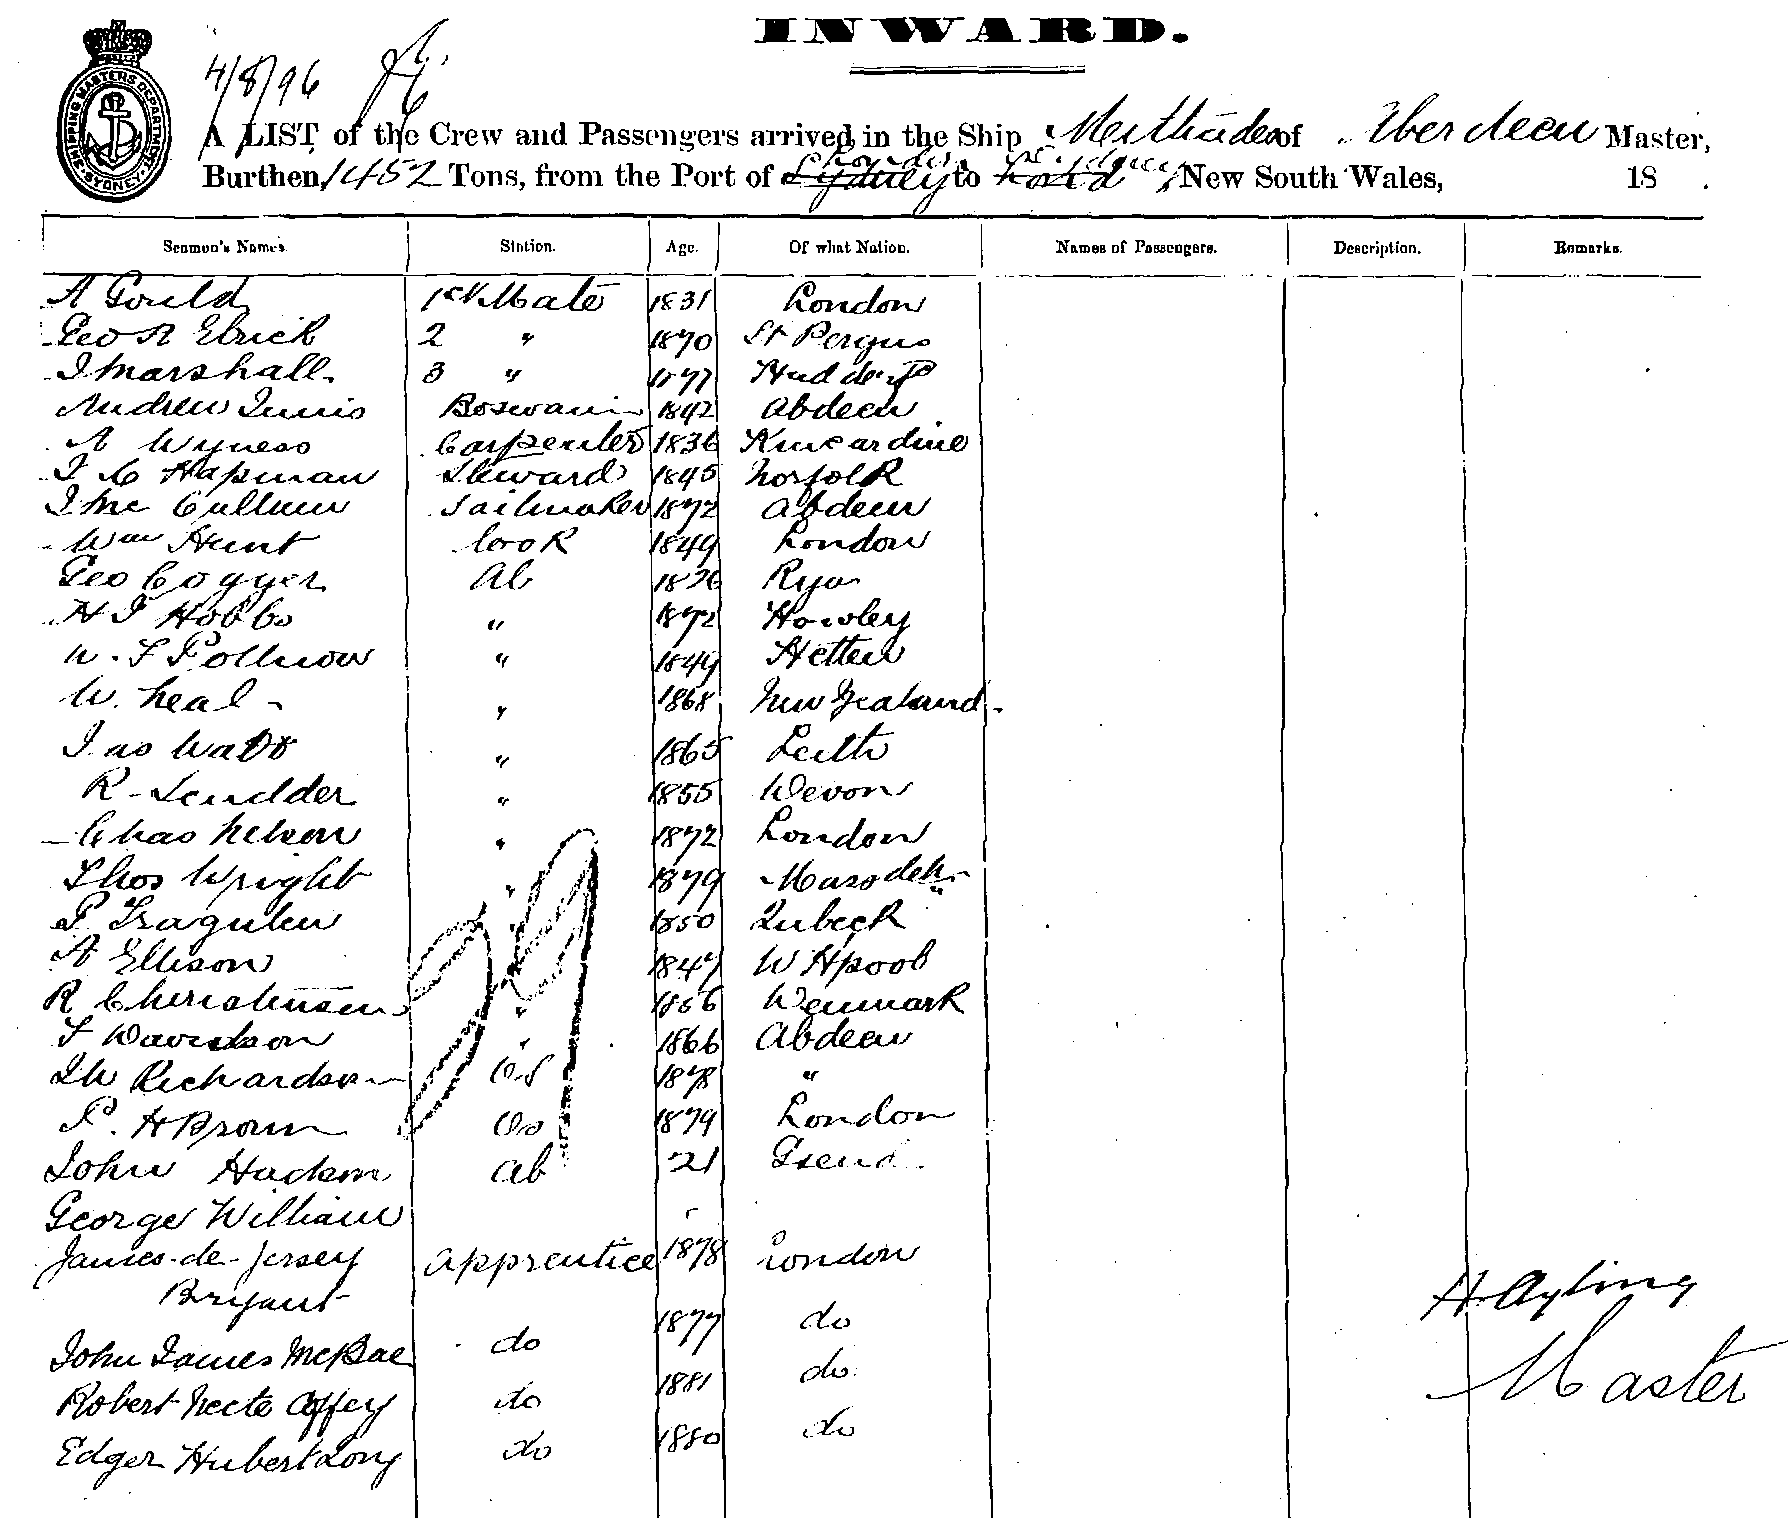 INWARD.
SHIPPING MASTERS DEPARTMENT SYDNEY
4/8/96
A LIST of the Crew and Passengers arrived in the Ship of Aberdeen Master,
Burthen 1452 Tons, from the Port of Sydney London to London Sydney, New South Wales, 18 .
Seamen's Names. Station. Age. Of what Nation. Names of Passengers. Description. Remarks.
A Gould 1st Mate 1831 London
Geo A Elrick 2 " 1870 St Fergus
J Marshall 3 " 1877
Andrew Innis Boswain 1842 Abdeen
A Wyness Carpenter 1836 Kincardine
J C Hapman Steward 1845 Norfolk
J Mc Cullum Sailmaker 1872 Abdeen
Wm Hunt Cook 1849 London
Geo Cogger Ab 1876 Rye
H J Hobbs " 1872 Howley
W. F Pollnow " 1849 Hetten
W. Neal - " 1868 New Zealand
Jas Watt " 1865 Leith
R Scudder " 1855 Devon
Chas Nelson " 1872 London
Thos Wright " 1879
P " 1850 Lubeck
A Ellison " 1847 W Hpool
R Christensen " 1856 Denmark
F Davidson " 1866 Abdeen
J W Richardson OS 1878 "
P. H Brown Os 1879 London
John Hudson Ab 21 Gsend
George William
James-de-Jersey Apprentice 1878 London
Bryant
John James McBae do 1877 do
Robert Neete Affey do 1881 do
Edger Hubert Long do 1880 do
H Ayling
Master